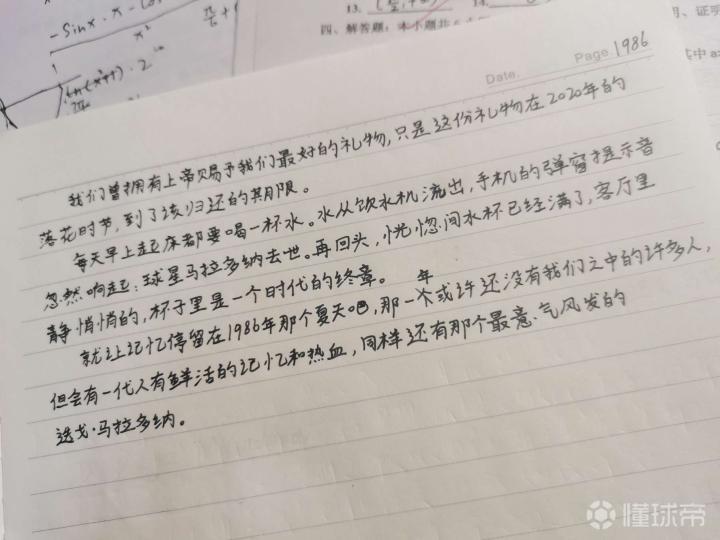 -Sinx·x-Co
x²
π/6 +
ln(x²+1)·2
13.
四、解答题：本小题共6
14.
明、证明
Date.
Page 1986
我们曾拥有上帝赐予我们最好的礼物，只是这份礼物在2020年的
落花时节，到了该归还的期限。
每天早上起床都要喝一杯水。水从饮水机流出，手机的弹窗提示音
忽然响起：球星马拉多纳去世。再回头，恍惚间水杯已经满了，客厅里
静悄悄的，杯子里是一个时代的终章。
就让记忆停留在1986年那个夏天吧，那一年或许还没有我们之中的许多人，
但会有一代人有鲜活的记忆和热血，同样还有那个最意气风发的
迭戈·马拉多纳。
懂球帝